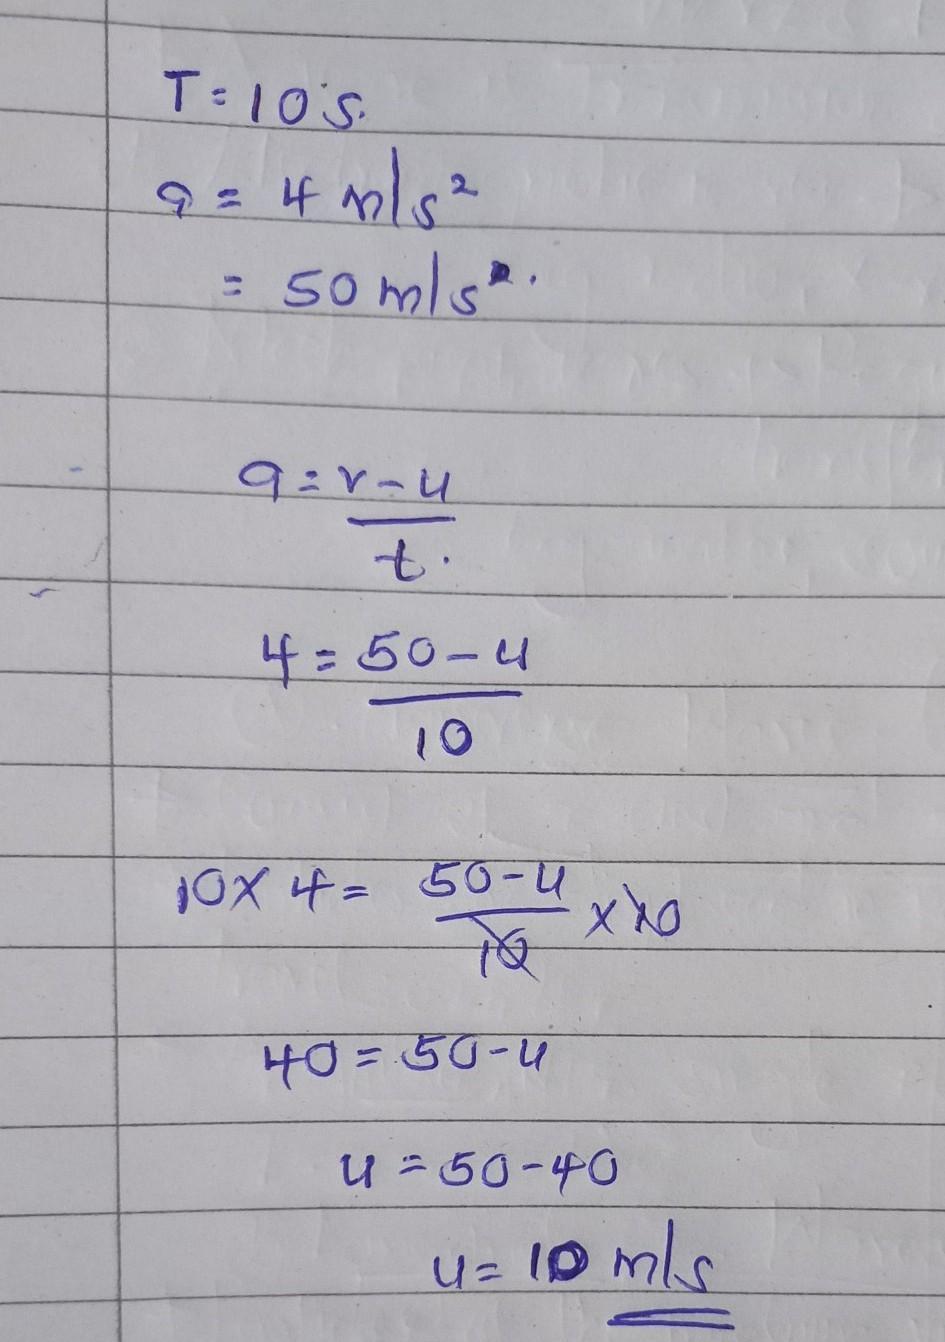 T = 10 s.
a = 4 m/s²
= 50 m/s .
a = v - u
t .
4 = 50 - u
10
10 x 4 = 50 - u x 10
10
40 = 50 - u
u = 50 - 40
u = 10 m/s